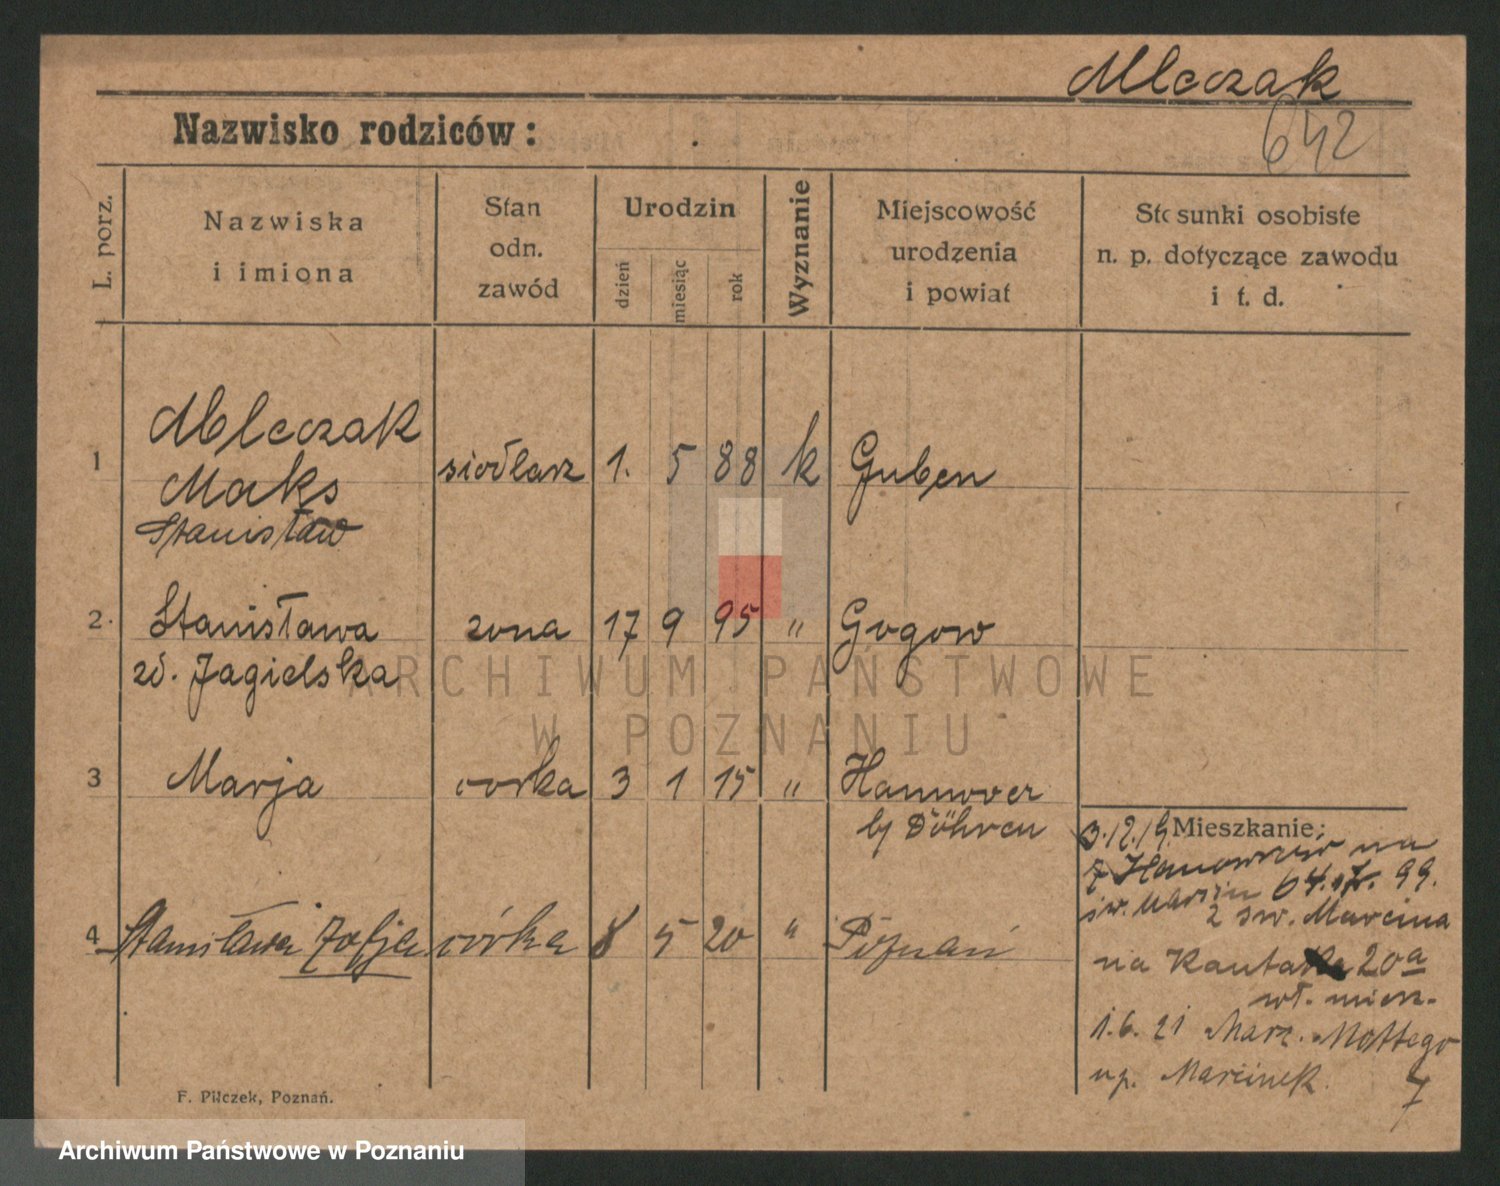 Mleczak
Nazwisko rodziców:
642
L. porz.
Nazwiska
i imiona
Stan
odn.
zawód
Urodzin
dzień
miesiąc
rok
Wyznanie
Miejscowość
urodzenia
i powiat
Stosunki osobiste
n. p. dotyczące zawodu
i t. d.
Mleczak
1 Maks siodlarz 1. 5 88 k Guben
Stanisław
2. Stanisława zona 17 9 95 " Gogow
zd. Jagielska
ARCHIWUM PAŃSTWOWE
W POZNANIU
3 Marja corka 3 1 15 " Hannover
bj Döhren
Mieszkanie:
3.12.19.
z Hanoweru na
św. Marcin 64. 99.
4 Stanisława Zofja córka 8 5 20 " Poznań
z św. Marcina
na Kantaka 20a
wł. miesz.
1.6.21 Marz. Mottego
up. Marcinek. 7
F. Pilczek, Poznań.
Archiwum Państwowe w Poznaniu